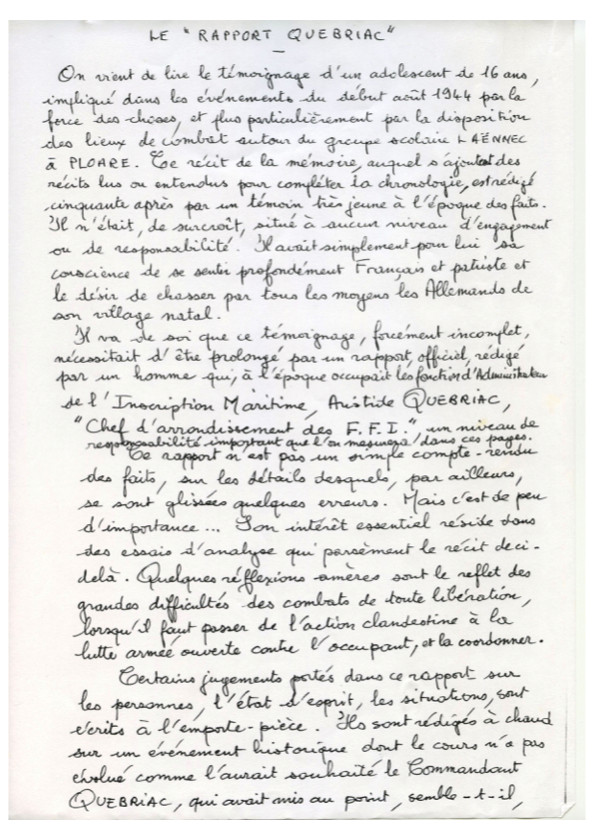 LE "RAPPORT QUEBRIAC"
On vient de lire le témoignage d'un adolescent de 16 ans,
impliqué dans les événements du début août 1944 par la
force des choses, et plus particulièrement par la disposition
des lieux de combat autour du groupe scolaire LAËNNEC
à PLOARE. Ce récit de la mémoire, auquel s'ajoutent des
récits lus ou entendus pour compléter la chronologie, est rédigé
cinquante après par un témoin très jeune à l'époque des faits.
Il n'était, de surcroît, situé à aucun niveau d'engagement
ou de responsabilité. Il avait simplement pour lui sa
conscience de se sentir profondément Français et patriote et
le désir de chasser par tous les moyens les Allemands de
son village natal.
Il va de soi que ce témoignage, forcément incomplet,
nécessitait d'être prolongé par un rapport, officiel, rédigé
par un homme qui, à l'époque occupait les fonctions d'Administrateur
de l'Inscription Maritime, Aristide QUEBRIAC,
"Chef d'arrondissement des F.F.I.", un niveau de
responsabilité important que l'on mesurera dans ces pages.
Ce rapport n'est pas un simple compte-rendu
des faits, sur les détails desquels, par ailleurs,
se sont glissées quelques erreurs. Mais c'est de peu
d'importance... Son intérêt essentiel réside dans
des essais d'analyse qui parsèment le récit deci-
delà. Quelques réfflexions amères sont le reflet des
grandes difficultés des combats de toute libération,
lorsqu'il faut passer de l'action clandestine à la
lutte armée ouverte contre l'occupant, et la coordonner.
Certains jugements portés dans ce rapport sur
les personnes, l'état d'esprit, les situations, sont
écrits à l'emporte-pièce. Ils sont rédigés à chaud
sur un événement historique dont le cours n'a pas
évolué comme l'aurait souhaité le Commandant
QUEBRIAC, qui avait mis au point, semble-t-il,